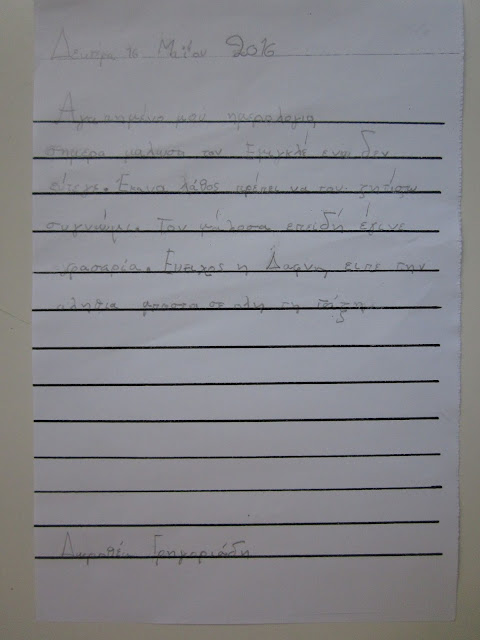 Δευτέρα 16 Μαΐου 2016
Αγαπημένο μου ημερολόγιο
σήμερα μάλωσα τον ενώ δεν
έφταιγε. Έκανα λάθος πρέπει να του ζητήσω
συγνώμη. Τον μάλοσα επειδή έγινε
φασαρία. Ευτιχός η Δάφνη είπε την
αλήθια μπροστα σε ολη τη τάξη.
Δωροθέα Γρηγοριάδη